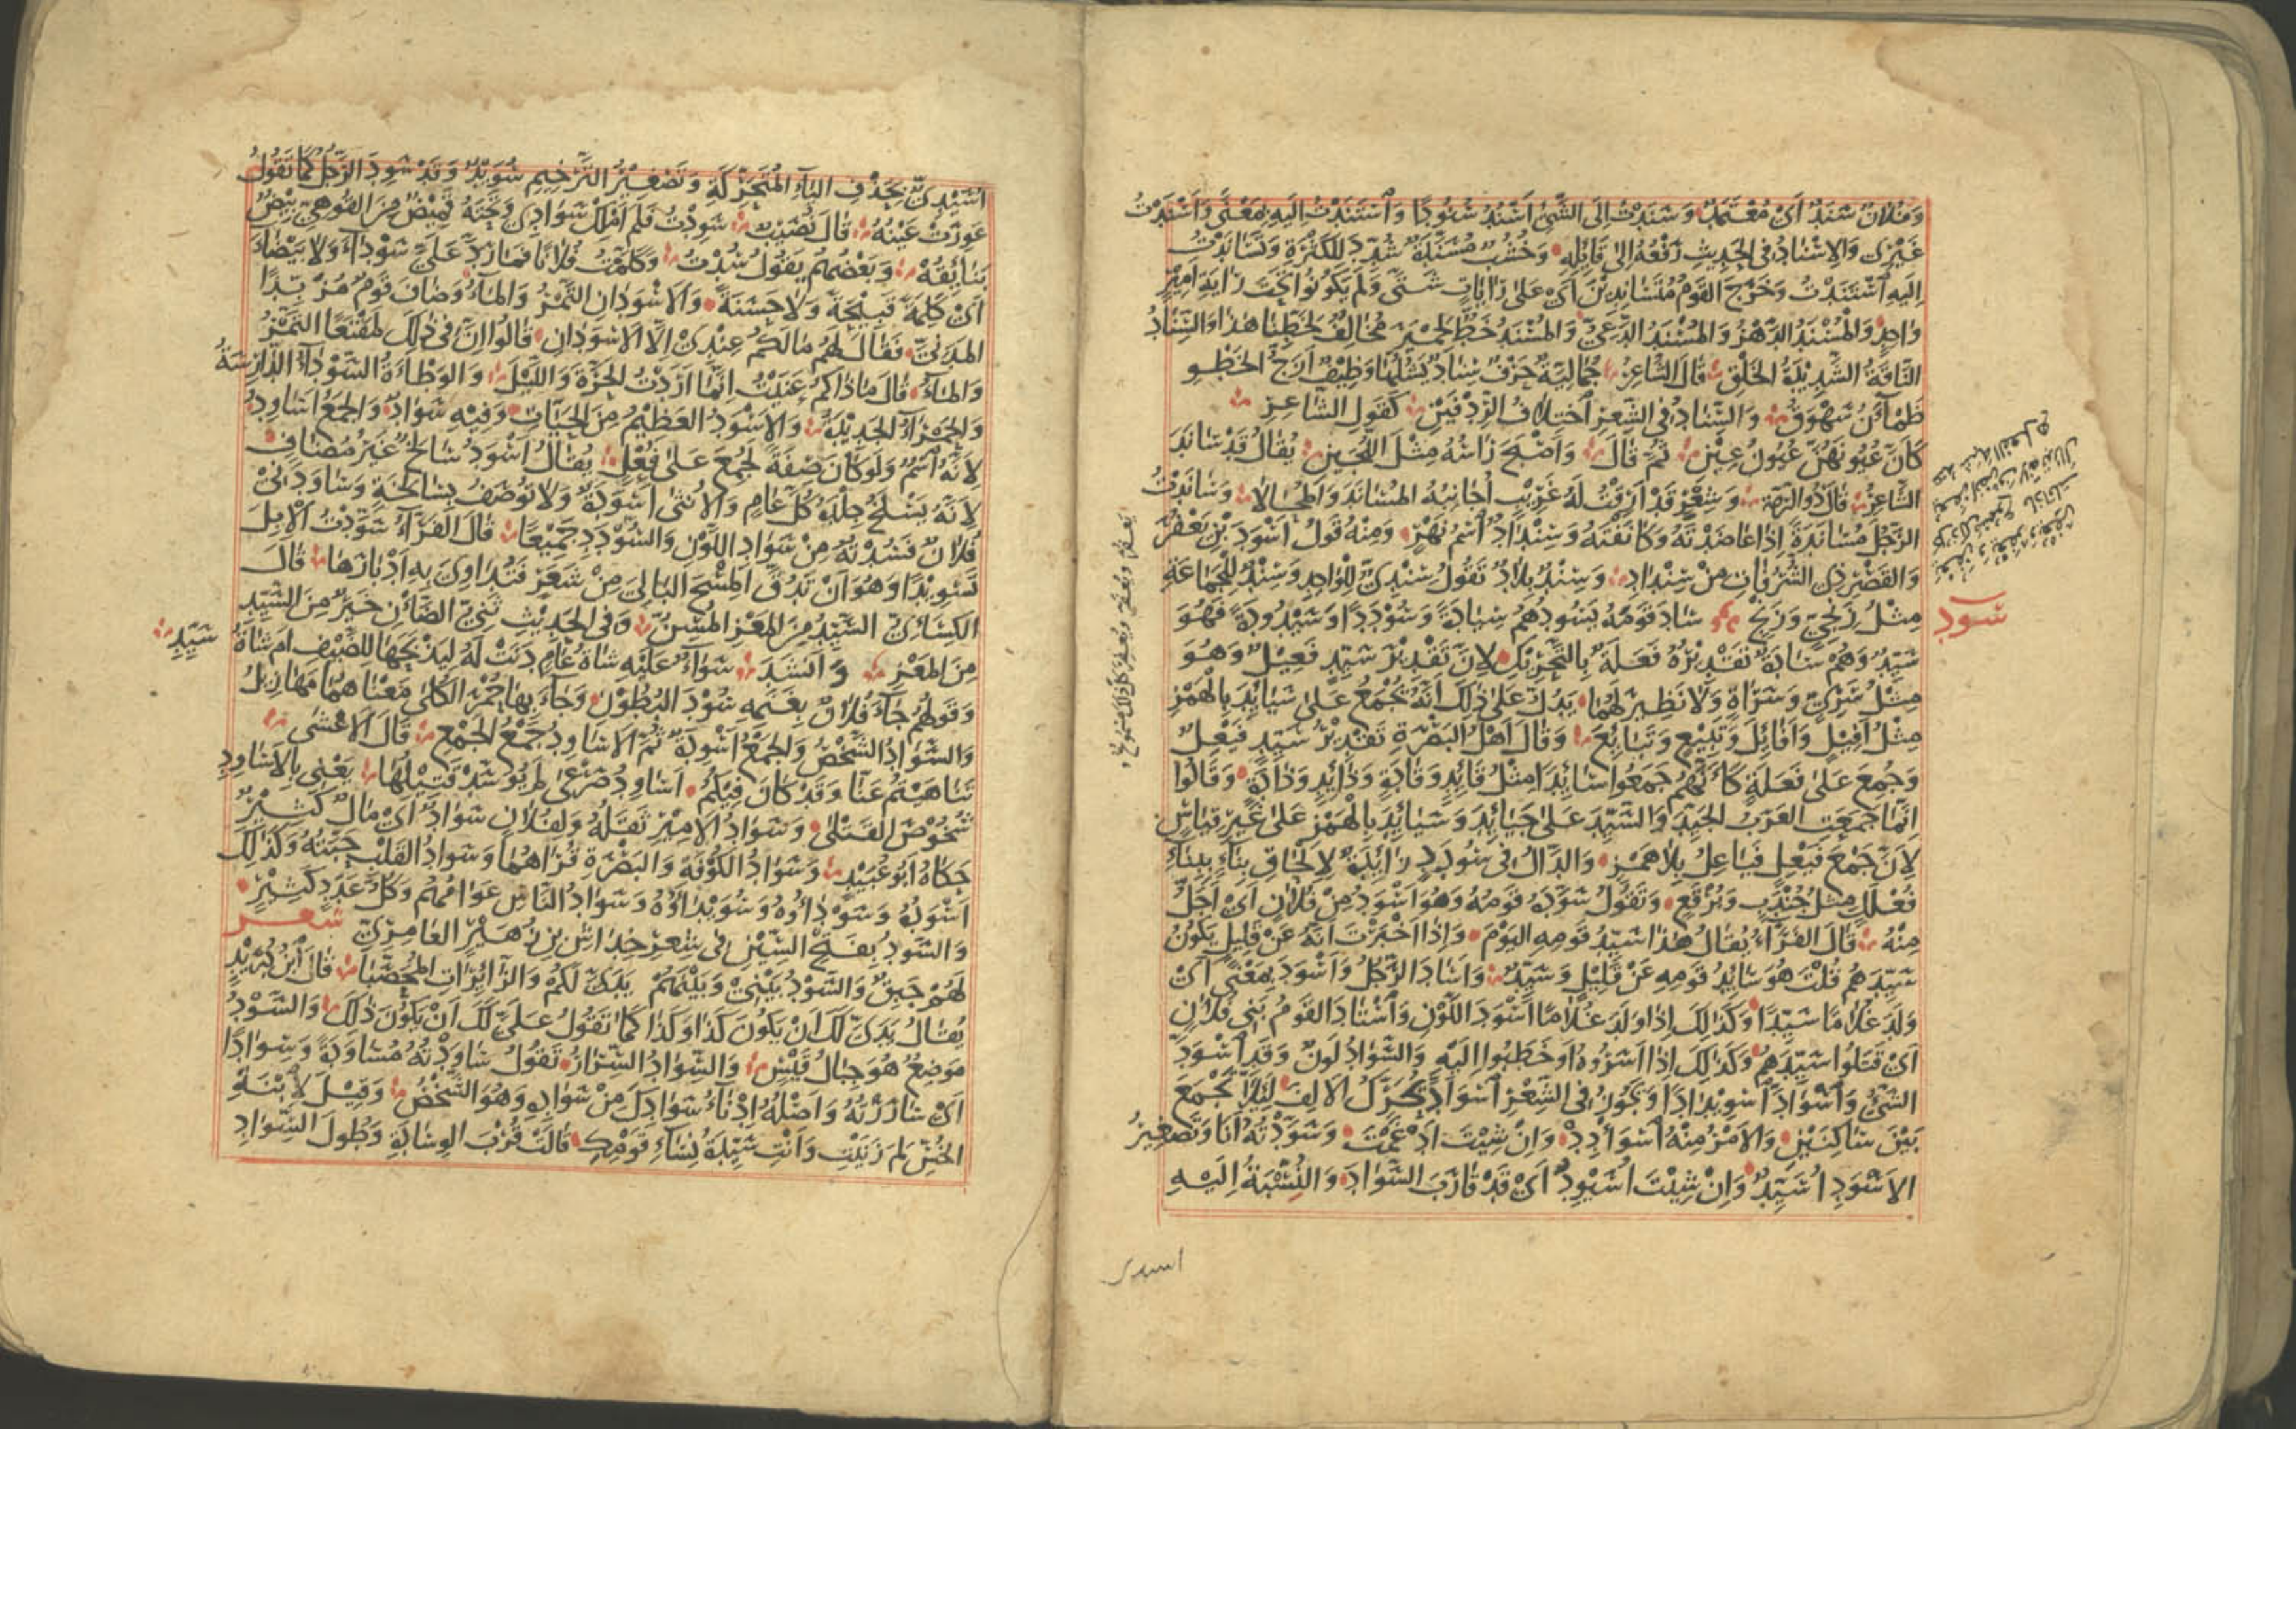 وَفُلَانٌ سَنَدٌ أَيْ مُعْتَمَدٌ وَسَنَدْتُ إِلَى الشَّيْءِ أَسْنُدُ سُنُودًا وَاسْتَنَدْتُ إِلَيْهِ بِمَعْنًى وَأَسْنَدْتُ
غَيْرِي وَالْإِسْنَادُ فِي الْحَدِيثِ رَفْعُهُ إِلَى قَائِلِهِ وَخُشُبٌ مُسَنَّدَةٌ شُدِّدَ لِلْكَثْرَةِ وَتَسَانَدْتُ
إِلَيْهِ اسْتَنَدْتُ وَخَرَجَ الْقَوْمُ مُتَسَانِدِينَ أَيْ عَلَى رَايَاتٍ شَتَّى وَلَمْ يَكُونُوا تَحْتَ رَايَةِ أَمِيرٍ
وَاحِدٍ وَالْمُسْنَدُ الدَّهْرُ وَالْمُسْنَدُ الدَّعِيُّ وَالْمُسْنَدُ خَطٌّ لِحِمْيَرَ مُخَالِفٌ لِخَطِّنَا هَذَا وَالسِّنَادُ
النَّاقَةُ الشَّدِيدَةُ الْخَلْقِ قَالَ الشَّاعِرُ جُمَالِيَّةٌ حَرْفٌ سِنَادٌ يَشُلُّهَا وَظِيفٌ أَزَجُّ الْخَطْوِ
ظَمْآنُ سَهْوَقُ وَالسِّنَادُ فِي الشِّعْرِ اخْتِلَافُ الرِّدْفَيْنِ كَقَوْلِ الشَّاعِرِ
كَأَنَّ عُيُونَهُنَّ عُيُونُ عِينِ ثُمَّ قَالَ وَأَصْبَحَ رَأْسُهُ مِثْلَ اللُّجَيْنِ يُقَالُ قَدْ سَانَدَ
الشَّاعِرُ قَالَ ذُو الرُّمَّةِ وَشِعْرٍ قَدْ أَرِقْتُ لَهُ غَرِيبٍ أُجَانِبُهُ الْمُسَانَدَ وَالْمُحَالَا وَسَانَدْتُ
الرَّجُلَ مُسَانَدَةً إِذَا عَاضَدْتَهُ وَكَانَفْتَهُ وَسِنْدَادٌ اسْمُ نَهْرٍ وَمِنْهُ قَوْلُ أَسْوَدَ بْنِ يَعْفُرَ
وَالْقَصْرِ ذِي الشُّرُفَاتِ مِنْ سِنْدَادِ وَسِنْدُ بِلَادٌ تَقُولُ سِنْدِيٌّ لِلْوَاحِدِ وَسِنْدٌ لِلْجَمَاعَةِ
مِثْلُ زِنْجِيٍّ وَزِنْجٍ سَادَ قَوْمَهُ يَسُودُهُمْ سِيَادَةً وَسُودَدًا وَسَيْدُودَةً فَهُوَ
سود
سَيِّدٌ وَهُمْ سَادَةٌ تَقْدِيرُهُ فَعَلَةٌ بِالتَّحْرِيكِ لِأَنَّ تَقْدِيرَ سَيِّدٍ فَعِيلٌ وَهُوَ
مِثْلُ سَرِيٍّ وَسَرَاةٍ وَلَا نَظِيرَ لَهُمَا يَدُلُّ عَلَى ذَلِكَ أَنَّهُ يُجْمَعُ عَلَى سَيَائِدَ بِالْهَمْزِ
مِثْلُ أَفِيلٍ وَأَفَائِلَ وَتَبِيعٍ وَتَبَائِعَ وَقَالَ أَهْلُ الْبَصْرَةِ تَقْدِيرُ سَيِّدٍ فَيْعِلٌ
وَجُمِعَ عَلَى فَعَلَةٍ كَأَنَّهُمْ جَمَعُوا سَائِدًا مِثْلُ قَائِدٍ وَقَادَةٍ وَذَائِدٍ وَذَادَةٍ وَقَالُوا
إِنَّمَا جَمَعَتِ الْعَرَبُ الْجَيِّدَ وَالسَّيِّدَ عَلَى جَيَائِدَ وَسَيَائِدَ بِالْهَمْزِ عَلَى غَيْرِ قِيَاسٍ
لِأَنَّ جَمْعَ فَيْعِلٍ فَيَاعِلُ بِلَا هَمْزٍ وَالدَّالُ فِي سُودَدٍ زَائِدَةٌ لِإِلْحَاقِ بِنَاءٍ بِبِنَاءِ
فُعْلَلٍ مِثْلُ جُنْدَبٍ وَبُرْقَعٍ وَتَقُولُ سَوَّدَهُ قَوْمُهُ وَهُوَ أَسْوَدُ مِنْ فُلَانٍ أَيْ أَجَلُّ
مِنْهُ قَالَ الْفَرَّاءُ يُقَالُ هَذَا سَيِّدُ قَوْمِهِ الْيَوْمَ وَإِذَا أَخْبَرْتَ أَنَّهُ عَنْ قَلِيلٍ يَكُونُ
سَيِّدَهُمْ قُلْتَ هُوَ سَائِدُ قَوْمِهِ عَنْ قَلِيلٍ وَسَيِّدٌ وَأَسَادَ الرَّجُلُ وَأَسْوَدَ بِمَعْنًى أَيْ
وَلَدَ غُلَامًا سَيِّدًا وَكَذَلِكَ إِذَا وَلَدَ غُلَامًا أَسْوَدَ اللَّوْنِ وَاسْتَادَ الْقَوْمُ بَنِي فُلَانٍ
أَيْ قَتَلُوا سَيِّدَهُمْ وَكَذَلِكَ إِذَا أَسَرُوهُ أَوْ خَطَبُوا إِلَيْهِ وَالسَّوَادُ لَوْنٌ وَقَدِ اسْوَدَّ
الشَّيْءُ وَاسْوَادَّ اسْوِيدَادًا وَيَجُوزُ فِي الشِّعْرِ اسْوَأَدَّ تُحَرَّكُ الْأَلِفُ لِئَلَّا يُجْمَعَ
بَيْنَ سَاكِنَيْنِ وَالْأَمْرُ مِنْهُ اسْوَادِدْ وَإِنْ شِئْتَ أَدْغَمْتَ وَسَوَّدْتُهُ أَنَا وَتَصْغِيرُ
الْأَسْوَدِ أُسَيِّدٌ وَإِنْ شِئْتَ أُسَيْوِدٌ أَيْ قَدْ قَارَبَ السَّوَادَ وَالنِّسْبَةُ إِلَيْهِ
اسيدي
أُسَيْدِيٌّ بِحَذْفِ الْيَاءِ الْمُتَحَرِّكَةِ وَتَصْغِيرُ التَّرْخِيمِ سُوَيْدٌ وَقَدْ سَوِدَ الرَّجُلُ كَمَا تَقُولُ
عَوِرَتْ عَيْنُهُ قَالَ نُصَيْبٌ سَوِدْتُ فَلَمْ أَمْلِكْ سَوَادِي وَتَحْتَهُ قَمِيصٌ مِنَ الْقُوهِيِّ بِيضٌ
بَنَائِقُهْ وَبَعْضُهُمْ يَقُولُ سُدْتُ وَكَلَّمْتُ فُلَانًا فَمَا رَدَّ عَلَيَّ سَوْدَاءَ وَلَا بَيْضَاءَ
أَيْ كَلِمَةً قَبِيحَةً وَلَا حَسَنَةً وَالْأَسْوَدَانِ التَّمْرُ وَالْمَاءُ وَضَافَ قَوْمٌ مُزَبِّدًا
الْمَدَنِيَّ فَقَالَ لَهُمْ مَا لَكُمْ عِنْدِي إِلَّا الْأَسْوَدَانِ قَالُوا إِنَّ فِي ذَلِكَ لَمَقْنَعًا التَّمْرُ
وَالْمَاءُ قَالَ مَا ذَاكُمْ عَنَيْتُ إِنَّمَا أَرَدْتُ الْحَرَّةَ وَاللَّيْلَ وَالْوَطْأَةُ السَّوْدَاءُ الدَّارِسَةُ
وَالْحَمْرَاءُ الْجَدِيدَةُ وَالْأَسْوَدُ الْعَظِيمُ مِنَ الْحَيَّاتِ وَفِيهِ سَوَادٌ وَالْجَمْعُ أَسَاوِدُ
لِأَنَّهُ اسْمٌ وَلَوْ كَانَ صِفَةً لَجُمِعَ عَلَى فُعْلٍ يُقَالُ أَسْوَدُ سَالِخٌ غَيْرُ مُضَافٍ
لِأَنَّهُ يَسْلَخُ جِلْدَهُ كُلَّ عَامٍ وَالْأُنْثَى أَسْوَدَةٌ وَلَا تُوصَفُ بِسَالِخَةٍ وَسَاوَدَنِي
فُلَانٌ فَسُدْتُهُ مِنْ سَوَادِ اللَّوْنِ وَالسُّودَدِ جَمِيعًا قَالَ الْفَرَّاءُ سَوَّدْتُ الْإِبِلَ
تَسْوِيدًا وَهُوَ أَنْ تَدُقَّ الْمِسْحَ الْبَالِيَ مِنْ شَعَرٍ فَتُدَاوِيَ بِهِ أَدْبَارَهَا قَالَ
الْكِسَائِيُّ السَّيِّدُ مِنَ الْمَعْزِ الْمُسِنُّ وَفِي الْحَدِيثِ ثَنِيُّ الضَّأْنِ خَيْرٌ مِنَ السَّيِّدِ
مِنَ الْمَعْزِ وَأَنْشَدَ سَوَاءٌ عَلَيْهِ شَاةُ عَامٍ دَنَتْ لَهُ لِيَذْبَحَهَا لِلضَّيْفِ أَمْ شَاةُ سَيِّدِ
وَقَوْلُهُمْ جَاءَ فُلَانٌ بِغَنَمِهِ سُودَ الْبُطُونِ وَجَاءَ بِهَا حُمْرَ الْكُلَى مَعْنَاهُمَا مَهَازِيلُ
وَالسَّوَادُ الشَّخْصُ وَالْجَمْعُ أَسْوِدَةٌ ثُمَّ الْأَسَاوِدُ جَمْعُ الْجَمْعِ قَالَ الْأَعْشَى
تَنَاهَيْتُمُ عَنَّا وَقَدْ كَانَ فِيكُمُ أَسَاوِدُ صَرْعَى لَمْ يُوَسَّدْ قَتِيلُهَا يَعْنِي بِالْأَسَاوِدِ
شُخُوصَ الْقَتْلَى وَسَوَادُ الْأَمِيرِ ثَقَلُهُ وَلِفُلَانٍ سَوَادٌ أَيْ مَالٌ كَثِيرٌ
حَكَاهُ أَبُو عُبَيْدٍ وَسَوَادُ الْكُوفَةِ وَالْبَصْرَةِ قُرَاهُمَا وَسَوَادُ الْقَلْبِ حَبَّتُهُ وَكَذَلِكَ
أَسْوَدُهُ وَسَوْدَاؤُهُ وَسُوَيْدَاؤُهُ وَسَوَادُ النَّاسِ عَوَامُّهُمْ وَكُلُّ عَدَدٍ كَثِيرٍ
وَالسَّوْدُ بِفَتْحِ السِّينِ فِي شِعْرِ خِدَاشِ بْنِ زُهَيْرٍ الْعَامِرِيِّ شعر
لَهُمْ حَبَقٌ وَالسَّوْدُ بَيْنِي وَبَيْنَهُمْ يَدَيَّ لَكُمْ وَالزَّائِرَاتِ الْمُحَصَّبَا قَالَ ابْنُ دُرَيْدٍ
يُقَالُ يَدَيَّ لَكَ أَنْ يَكُونَ كَذَا وَكَذَا كَمَا تَقُولُ عَلَيَّ لَكَ أَنْ يَكُونَ ذَلِكَ وَالسَّوْدُ
مَوْضِعٌ هُوَ جِبَالُ قَيْسٍ وَالسِّوَادُ السِّرَارُ تَقُولُ سَاوَدْتُهُ مُسَاوَدَةً وَسِوَادًا
أَيْ سَارَرْتُهُ وَأَصْلُهُ إِدْنَاءُ سَوَادِكَ مِنْ سَوَادِهِ وَهُوَ الشَّخْصُ وَقِيلَ لِابْنَةِ
الْخُسِّ لِمَ زَنَيْتِ وَأَنْتِ سَيِّدَةُ نِسَاءِ قَوْمِكِ قَالَتْ قُرْبُ الْوِسَادَةِ وَطُولُ السِّوَادِ